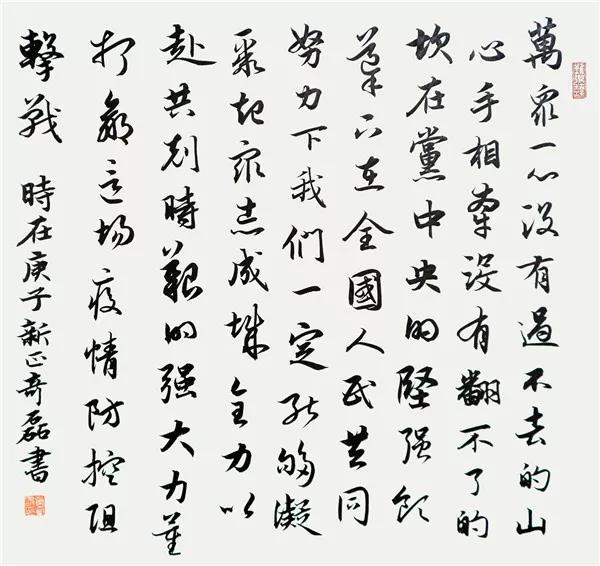 萬眾一心没有過不去的山
心手相牽没有翻不了的
坎在黨中央的堅强領
導下在全國人民共同
努力下我們一定能够凝
聚起眾志成城全力以
赴共剋時艱的强大力量
打贏這場疫情防控阻
擊戰 時在庚子新正奇磊書